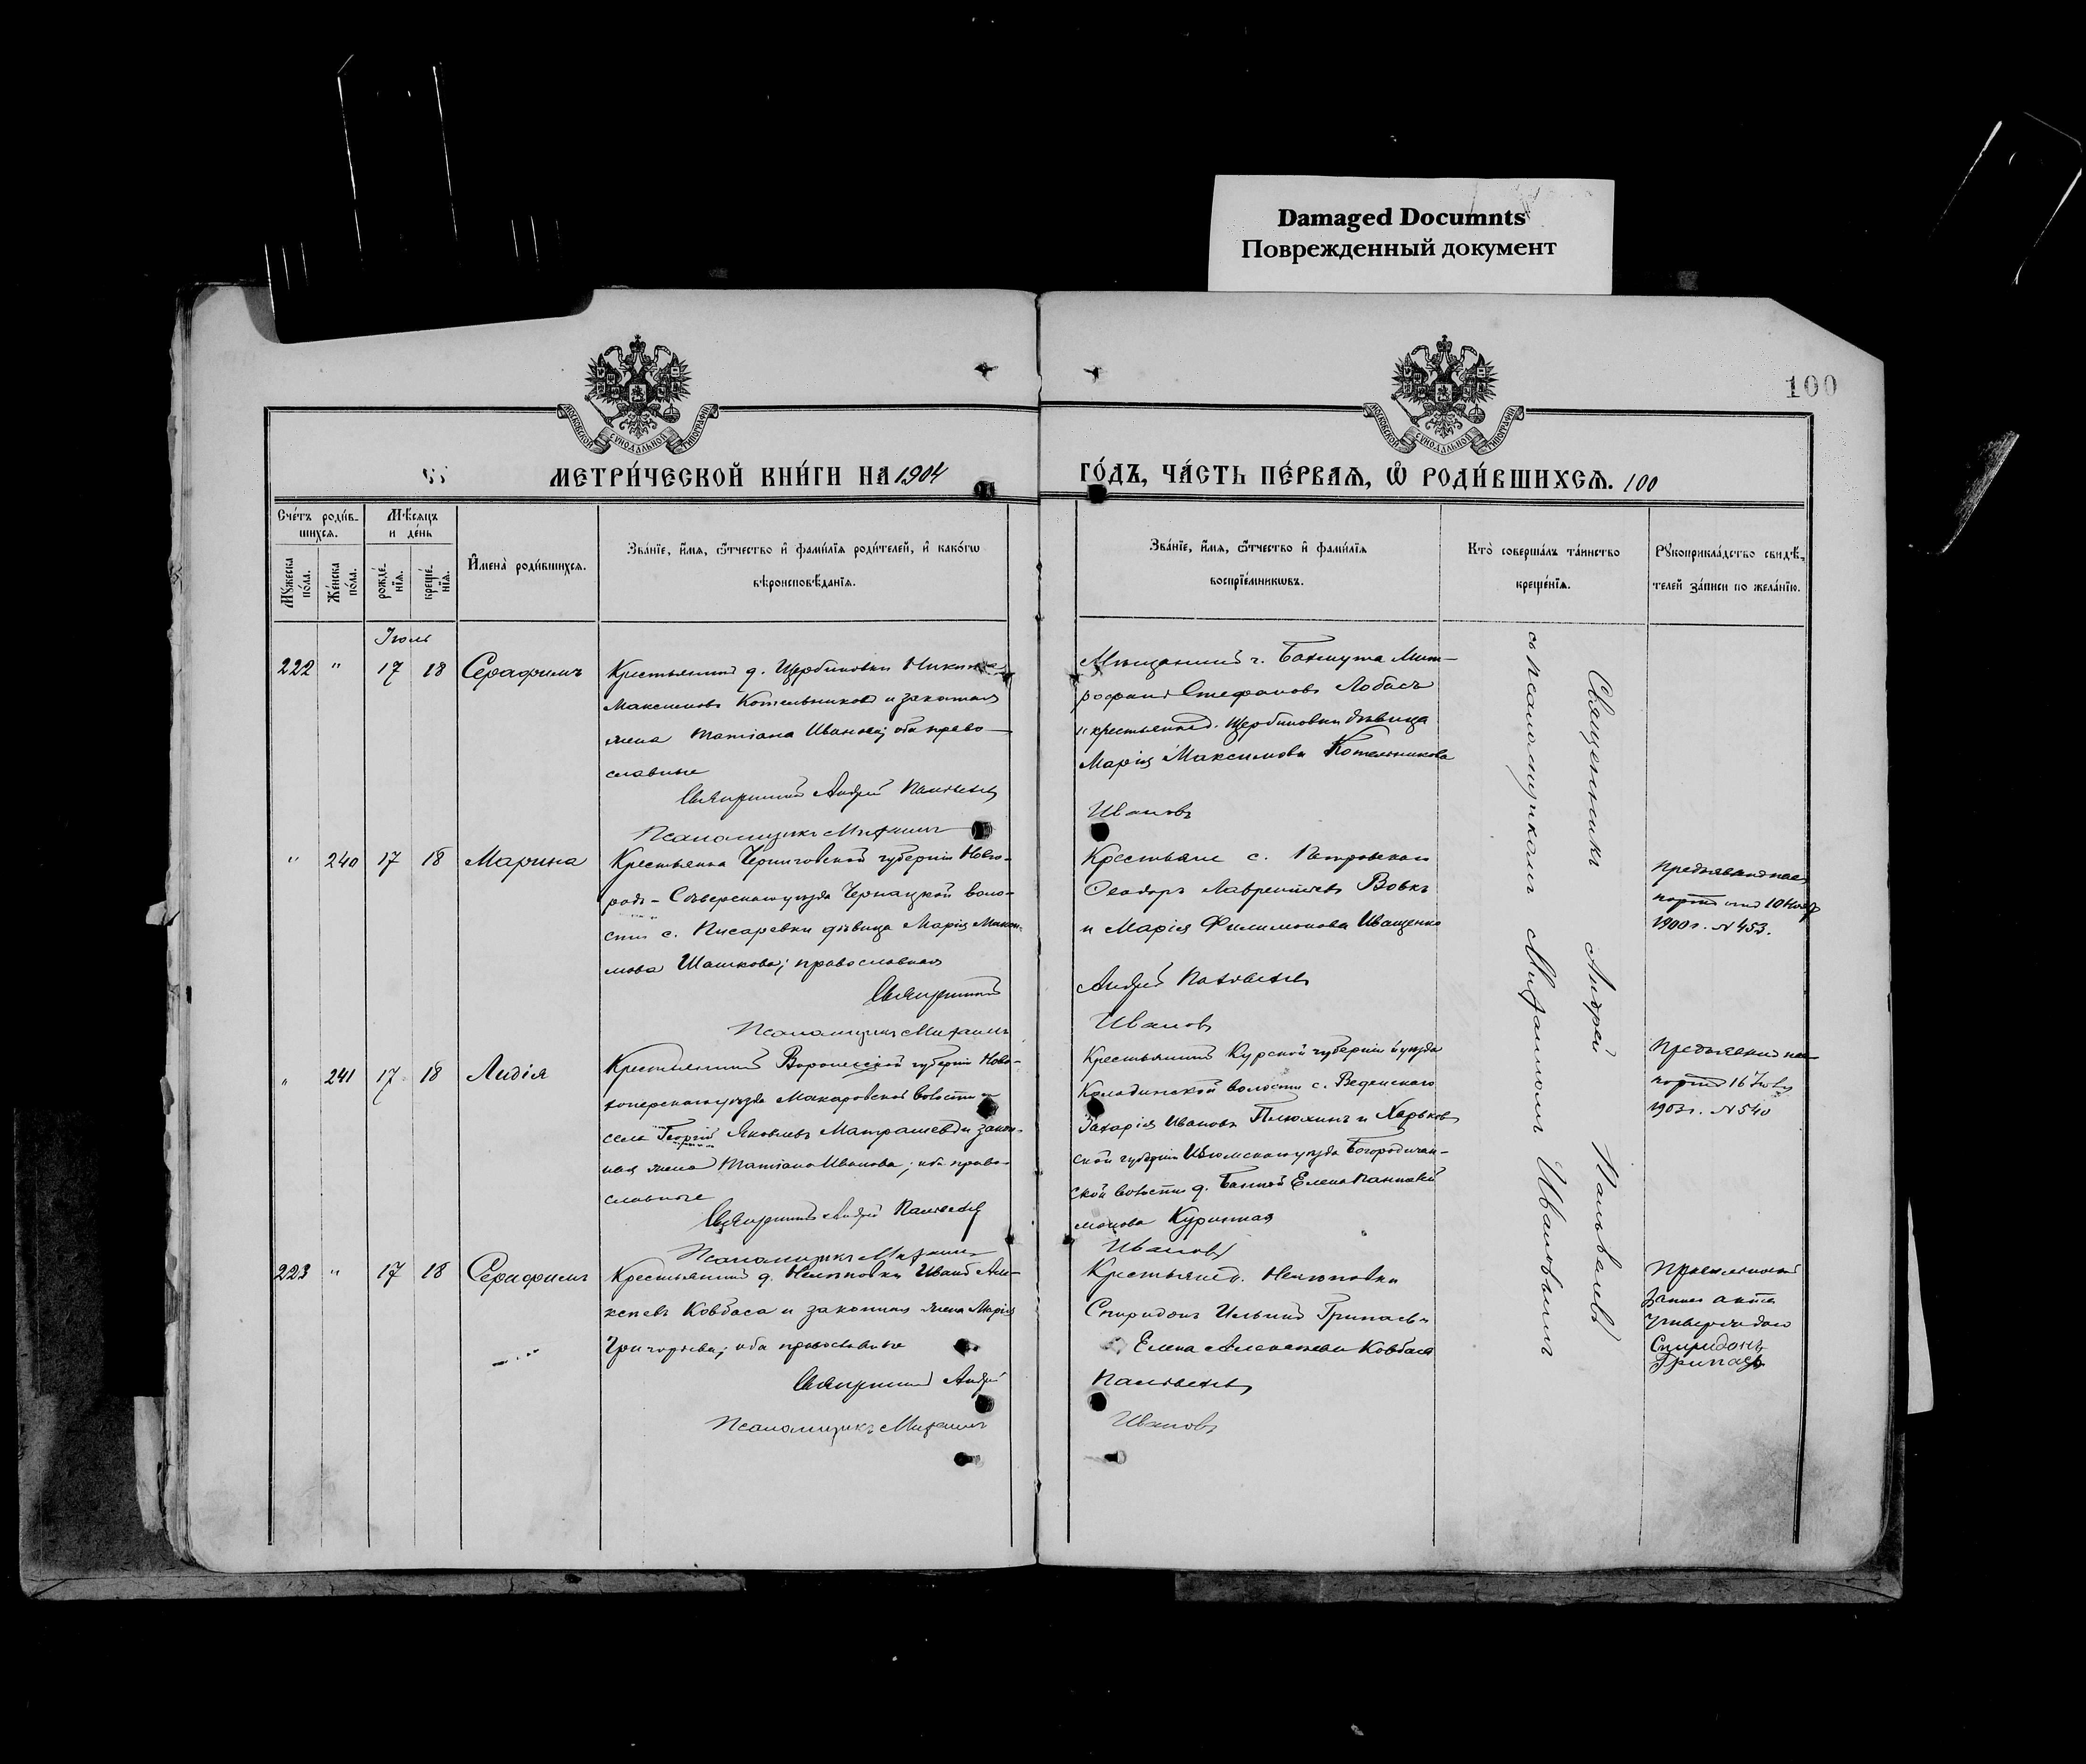 Damaged Documnts
Поврежденный документ
100
МОСКОВСКОЙ СѴНОДАЛЬНОЙ ТИПОГРАФІИ
МОСКОВСКОЙ СѴНОДАЛЬНОЙ ТИПОГРАФІИ
МЕТРИ́ЧЕСКОЙ КНИ́ГИ НА 1904
ГО́ДЪ, ЧА́СТЬ ПЕ́РВАѦ, Ѿ РОДИ́ВШИХСѦ. 100
Сче́тъ роди́в-
шихсѧ.
Мꙋ́жеска по́ла.
Же́нска по́ла.
Мѣ́сѧцъ
и де́нь
рожде́-нїѧ.
креще́-нїѧ.
И҆мена̀ роди́вшихсѧ.
Зва́нїе, и҆́мѧ, ѻ҆́тчество и҆ фами́лїѧ роди́телей, и҆ како́гѡ
вѣроисповѣ́данїѧ.
Зва́нїе, и҆́мѧ, ѻ҆́тчество и҆ фами́лїѧ
воспрїе́мникѡвъ.
Кто̀ соверша́лъ та́инство
креще́нїѧ.
Рꙋкоприкла́дство свидѣ́-
телей за́писи по жела́нїю.
Іюль
222 " 17 18 Серафимъ
Крестьянинъ д. Щербиновки Никита
Максимовъ Котельниковъ и законная
жена Татіана Иванова; оба право-
славные
Священникъ Андрей Павловскій
Псаломщикъ Михаилъ
Мѣщанинъ г. Бахмута Мит-
рофанъ Стефановъ Лобасъ
и крестьянка д. Щербиновки дѣвица
Марія Максимова Котельникова
Ивановъ
" 240 17 18 Марина
Крестьянка Черниговской губерніи Новго-
родъ-Сѣверскаго уѣзда Чернацкой воло-
сти с. Писаревки дѣвица Марія
Шашкова; православная
Священникъ
Псаломщикъ Михаилъ
Крестьяне с. Петровскаго
Ѳеодоръ Лаврентіевъ Вовкъ
и Марія Филимонова Иващенко
Андрей Павловскій
Ивановъ
Предъявленъ пас-
портъ отъ 10
1900 г. № 453.
" 241 17 18 Лидія
Крестьянинъ Воронежской губерніи Ново-
хоперскаго уѣзда Макаровской волости и
села Георгій Яковлевъ и закон-
ная жена Татіана Иванова; оба право-
славные
Священникъ Андрей Павловскій
Псаломщикъ Михаилъ
Крестьянинъ Курской губерніи и уѣзда
волости с. Веденскаго
Захарія Ивановъ Плюхинъ и Харьков-
ской губерніи Изюмскаго уѣзда Богородичан-
ской волости д. Банной Елена Пантелей-
монова Куритная
Ивановъ
Предъявленъ пас-
портъ 16
1903 г. № 540
223 " 17 18 Серафимъ
Крестьянинъ д. Нелюповки Иванъ Але-
ксѣевъ Ковбаса и законная жена Марія
Григорьева; оба православные
Священникъ Андрей
Псаломщикъ Михаилъ
Крестьяне д. Нелюповки
Спиридонъ Ильинъ
Елена Алексѣева Ковбаса
Павловскій
Ивановъ
Спиридонъ
Священникъ Андрей Павловскій
съ псаломщикомъ Михаиломъ Ивановымъ